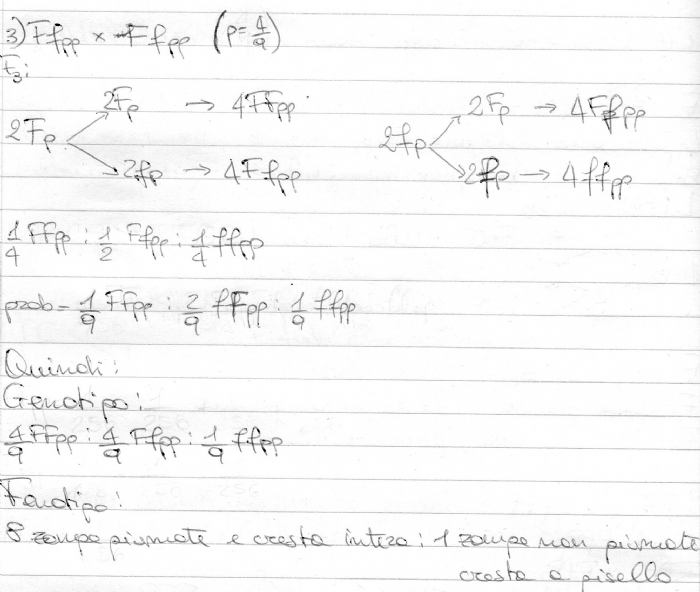 3) Ffpp x Ffpp (p=4/9)
F3:
2Fp → 2Fp → 4FFpp 2fp → 2Fp → 4Ffpp
→ 2fp → 4Ffpp → 2fp → 4ffpp
1/4 FFpp : 1/2 Ffpp : 1/4 ffpp
prob = 1/9 FFpp : 2/9 fFpp : 1/9 ffpp
Quindi:
Genotipo:
4/9 FFpp : 4/9 Ffpp : 1/9 ffpp
Fenotipo:
8 zampe piumate e cresta intera : 1 zampe non piumate
cresta a pisello